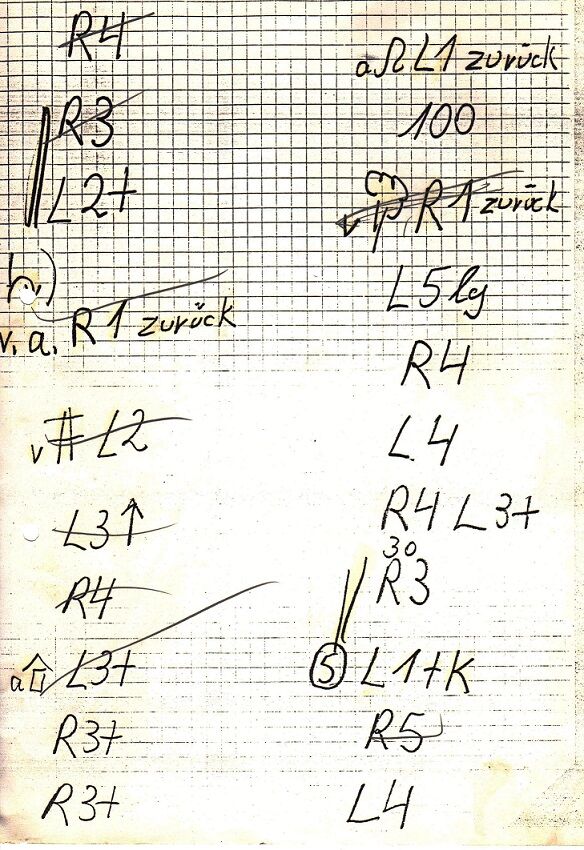 R4
R3
L2+
h)
v. a. R1 zurück
v # L2
L3↑
R4
a L3+
R3+
R3+
a Ω L1 zurück
100
v R1 zurück
L5 lg
R4
L4
R4 L3+
30
R3
5 L1+K
R5
L4